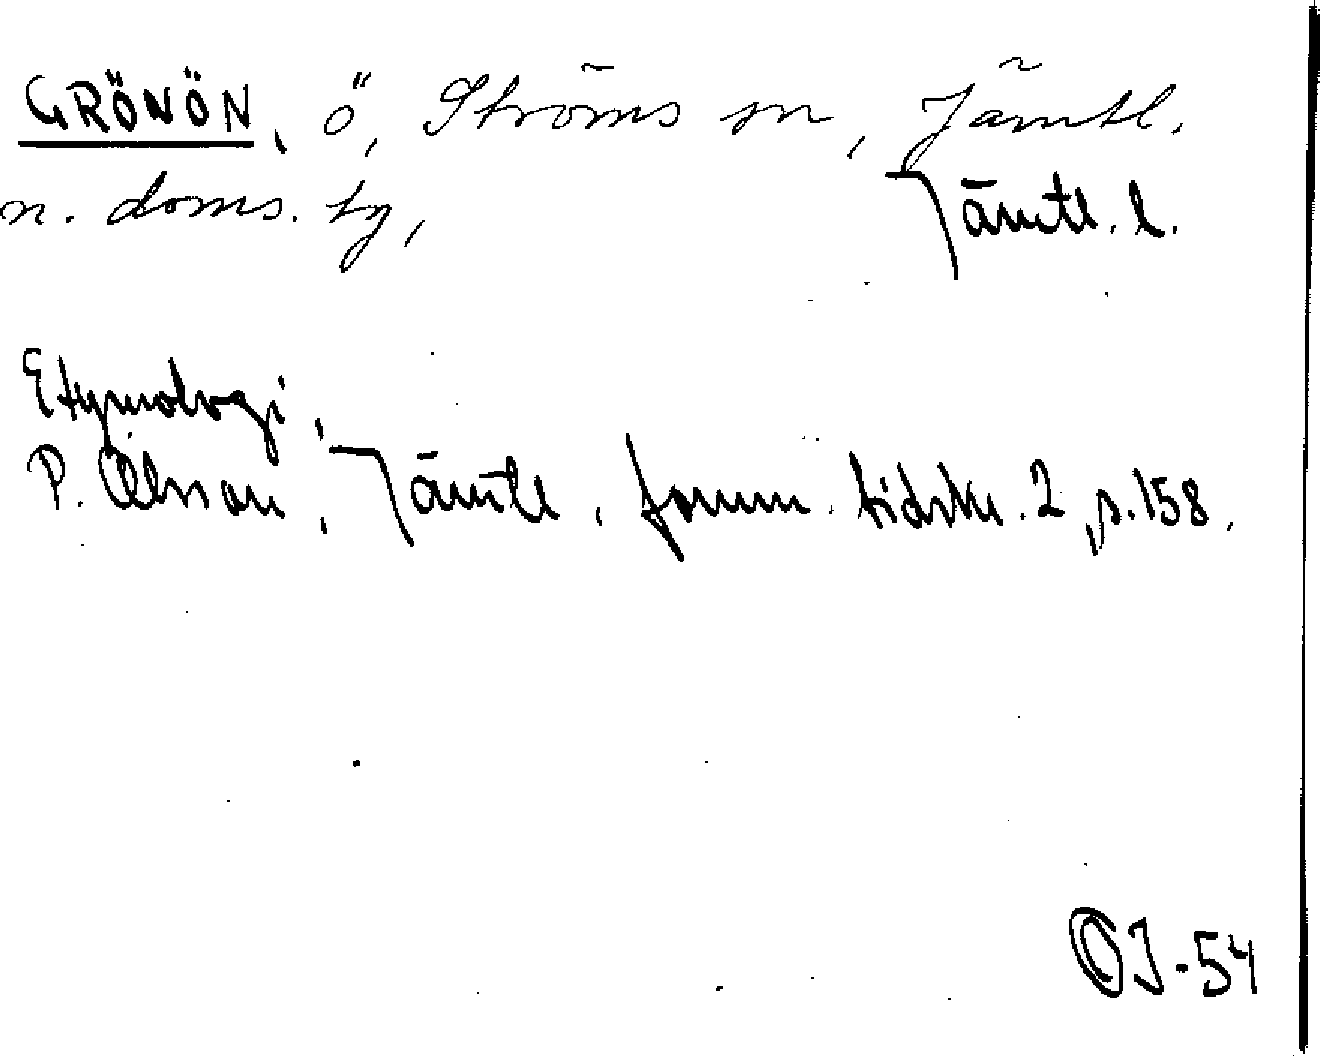 GRÖNÖN, ö, Ströms sn, Jämtl.
n. doms. tg, Jämtl. l.
Etymologi:
P. Olsson, Jämtl. fornm. tidskr. 2, s. 158.
OJ-54